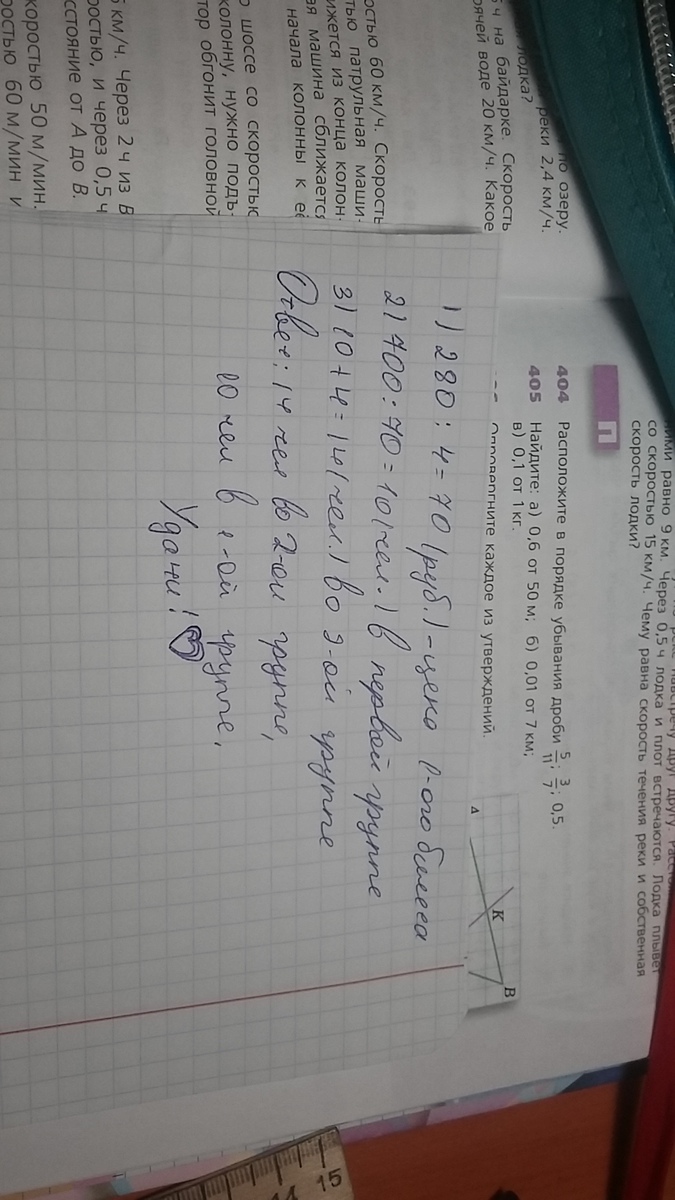 ними равно 9 км. Через 0,5 ч лодка и плот встречаются. Лодка плывёт
со скоростью 15 км/ч. Чему равна скорость течения реки и собственная
скорость лодки?
П
404 Расположите в порядке убывания дроби 5/11; 3/7; 0,5.
405 Найдите: а) 0,6 от 50 м; б) 0,01 от 7 км;
в) 0,1 от 1 кг.
Опровергните каждое из утверждений.
А К В
по озеру.
реки 2,4 км/ч.
лодка?
ч на байдарке. Скорость
воде 20 км/ч. Какое
60 км/ч. Скорость
патрульная маши-
из конца колон-
машина сближается
начала колонны к её
шоссе со скоростью
колонну, нужно подъ-
обгонит головной
км/ч. Через 2 ч из В
и через 0,5 ч
от А до В.
скоростью 50 м/мин.
60 м/мин и
1) 280 : 4 = 70 (руб.) - цена 1-ого билета
2) 700 : 70 = 10 (чел.) в первой группе
3) 10 + 4 = 14 (чел.) во 2-ой группе
Ответ: 14 чел во 2-ой группе,
10 чел в 1-ой группе,
Удачи!
14 15